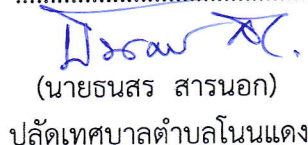 (นายธนสร สารนอก)
ปลัดเทศบาลตำบลโนนแดง